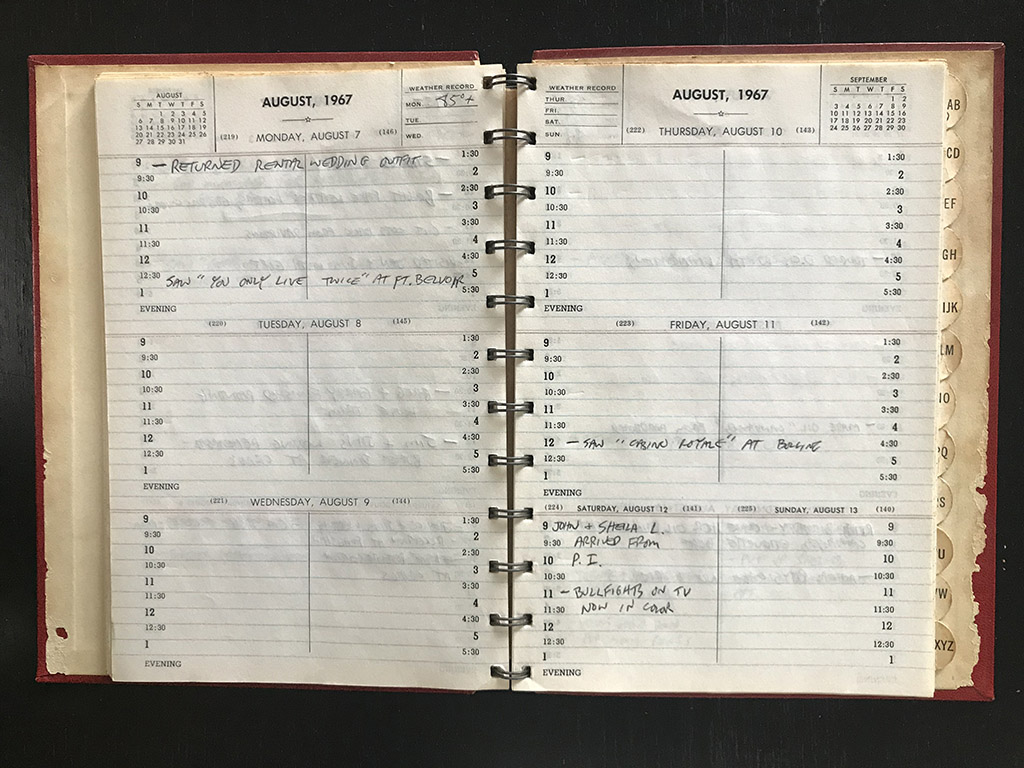 AUGUST
S M T W T F S
1 2 3 4 5
6 7 8 9 10 11 12
13 14 15 16 17 18 19
20 21 22 23 24 25 26
27 28 29 30 31
AUGUST, 1967
WEATHER RECORD
MON. 85°+
TUE.
WED.
(219) MONDAY, AUGUST 7 (146)
9 — RETURNED RENTAL WEDDING OUTFIT 1:30
9:30 2
10 2:30
10:30 3
11 3:30
11:30 4
12 4:30
12:30 SAW "YOU ONLY LIVE TWICE" AT FT. BELVOIR 5
1 5:30
EVENING
(220) TUESDAY, AUGUST 8 (145)
9 1:30
9:30 2
10 2:30
10:30 3
11 3:30
11:30 4
12 4:30
12:30 5
1 5:30
EVENING
(221) WEDNESDAY, AUGUST 9 (144)
9 1:30
9:30 2
10 2:30
10:30 3
11 3:30
11:30 4
12
12:30 5
1 5:30
EVENING
WEATHER RECORD
THUR.
FRI.
SAT.
SUN.
AUGUST, 1967
SEPTEMBER
S M T W T F S
1 2
3 4 5 6 7 8 9
10 11 12 13 14 15 16
17 18 19 20 21 22 23
24 25 26 27 28 29 30
(222) THURSDAY, AUGUST 10 (143)
9 1:30
9:30 2
10 2:30
10:30 3
11 3:30
11:30 4
12 4:30
12:30 5
1 5:30
EVENING
(223) FRIDAY, AUGUST 11 (142)
9 1:30
9:30 2
10 2:30
10:30 3
11 3:30
11:30 4
12 — SAW "CASINO ROYALE" AT 4:30
12:30 5
1 5:30
EVENING
(224) SATURDAY, AUGUST 12 (141)
9 JOHN + SHEILA L.
9:30 ARRIVED FROM
10 P.I.
10:30
11 — BULLFIGHTS ON TV
11:30 NOW IN COLOR
12
12:30
1
EVENING
(225) SUNDAY, AUGUST 13 (140)
9
9:30
10
10:30
11
11:30
12
12:30
1
AB
CD
EF
GH
IJK
LM
PQ
U
W
XYZ